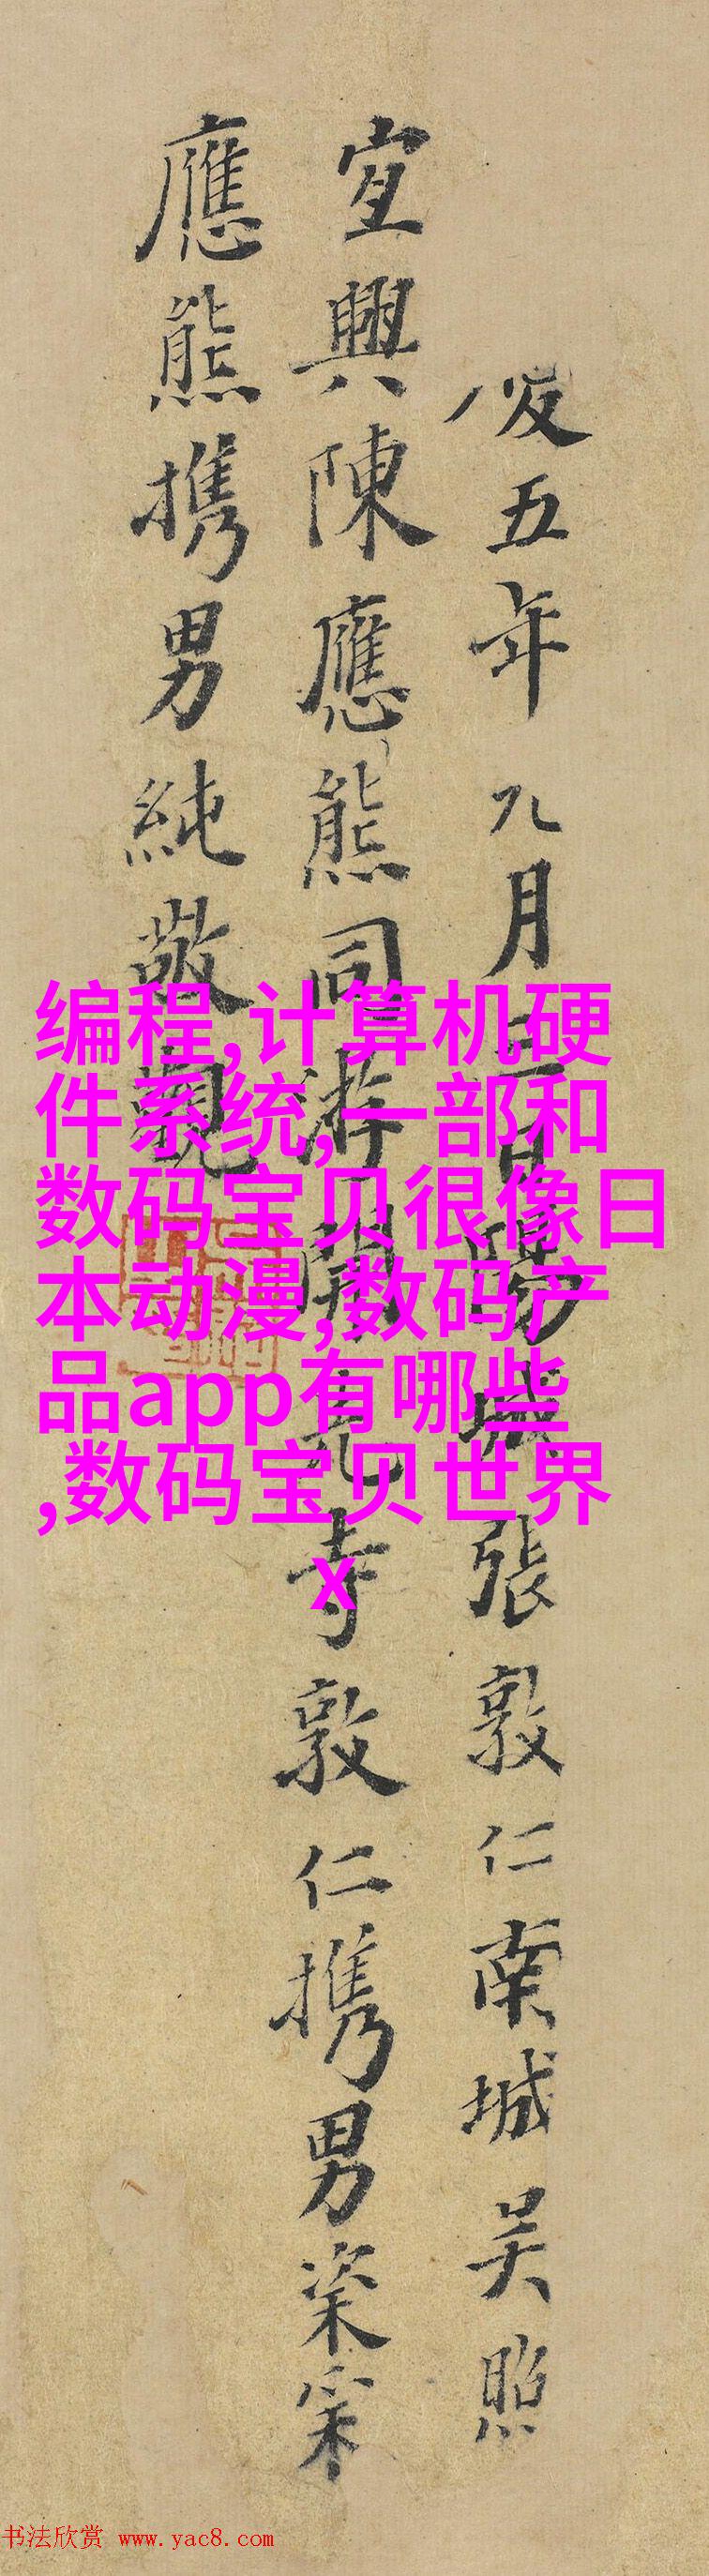 五年九月三日陽城張敦仁南城吴照
宜興陳應熊同游開元寺敦仁携男粢
應熊携男純敬觀
编程,计算机硬
件系统,一部和
数码宝贝很像日
本动漫,数码产
品app有哪些
,数码宝贝世界
x
书法欣赏 www.yac8.com